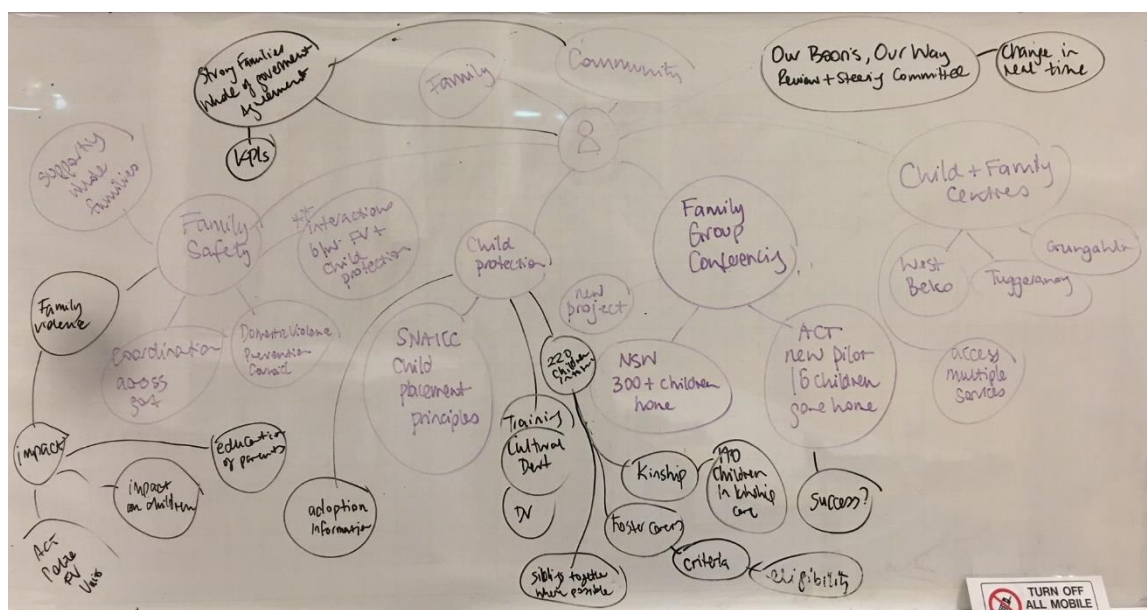 Strong Families
Whole of government
Agreement
KPIs
Family
Community
Our Booris, Our Way
Review + Steering Committee
Change in
real time
Supporting
whole
families
Family
Safety
interactions
b/w FV +
Child
protection
Child
protection
Family
Group
Conferencing
Child + Family
Centres
West
Belco
Tuggeranong
Gungahlin
access
multiple
services
Family
violence
Coordination
across
govt
Domestic Violence
Prevention
Council
SNAICC
Child
placement
principles
new
project
220
Children
NSW
300+ children
home
ACT
new pilot
16 children
gone home
Success?
impact
education
of parents
impact
on children
ACT
Police
FV
Unit
adoption
information
Training
Cultural
DV
Kinship
Children
in kinship
care
Foster carers
criteria
eligibility
siblings together
where possible
TURN OFF
ALL MOBILE